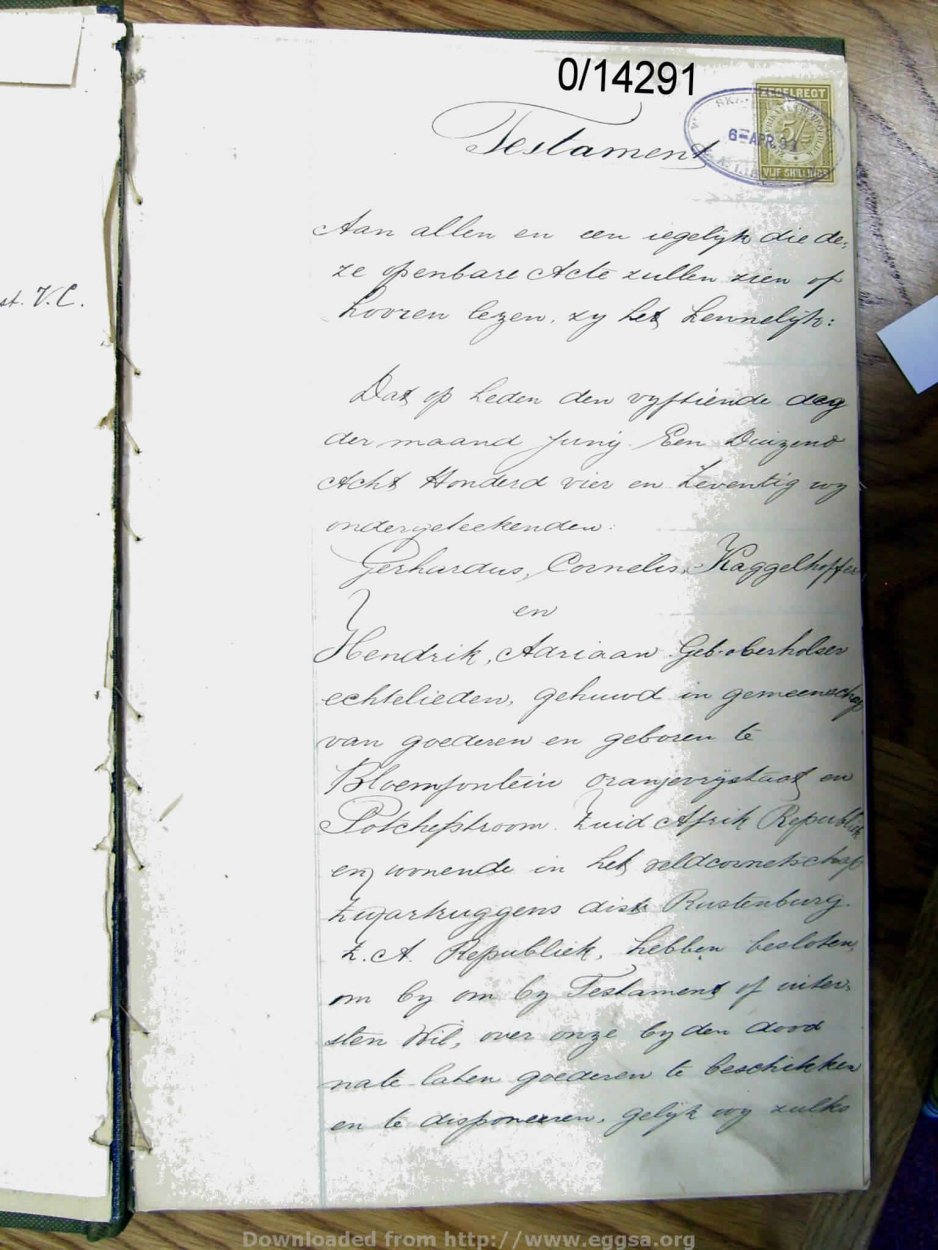 0/14291
ZEGELREGT
6 APR 9
5/
VIJF SHILLINGS
Testament
st. V.C.
Aan allen en een iegelijk die de:
ze openbare Acte zullen zien of
hooren lezen, zy het kennelijk:
Dat op heden den vyftiende dag
der maand Junij Een Duizend
Acht Honderd vier en Zeventig wy
ondergeteekenden:
Gerhardus, Cornelis, Kaggelhoffer
en
Hendrik, Adriaan Geb. oberholser
echtelieden, gehuwd in gemeenschap
van goederen en geboren te
Bloemfontein oranjevrijstaat en
Potchefstroom. Zuid Afrik Republiek
en wonende in het veldcornetschap
Zwartruggens distr Rustenburg.
Z. A. Republiek, hebben besloten,
om by om by Testament of uiter:
sten Wil, over onze by den dood
nate laten goederen te beschikken
en te disponeeren, gelijk wy zulks
Downloaded from http://www.eggsa.org